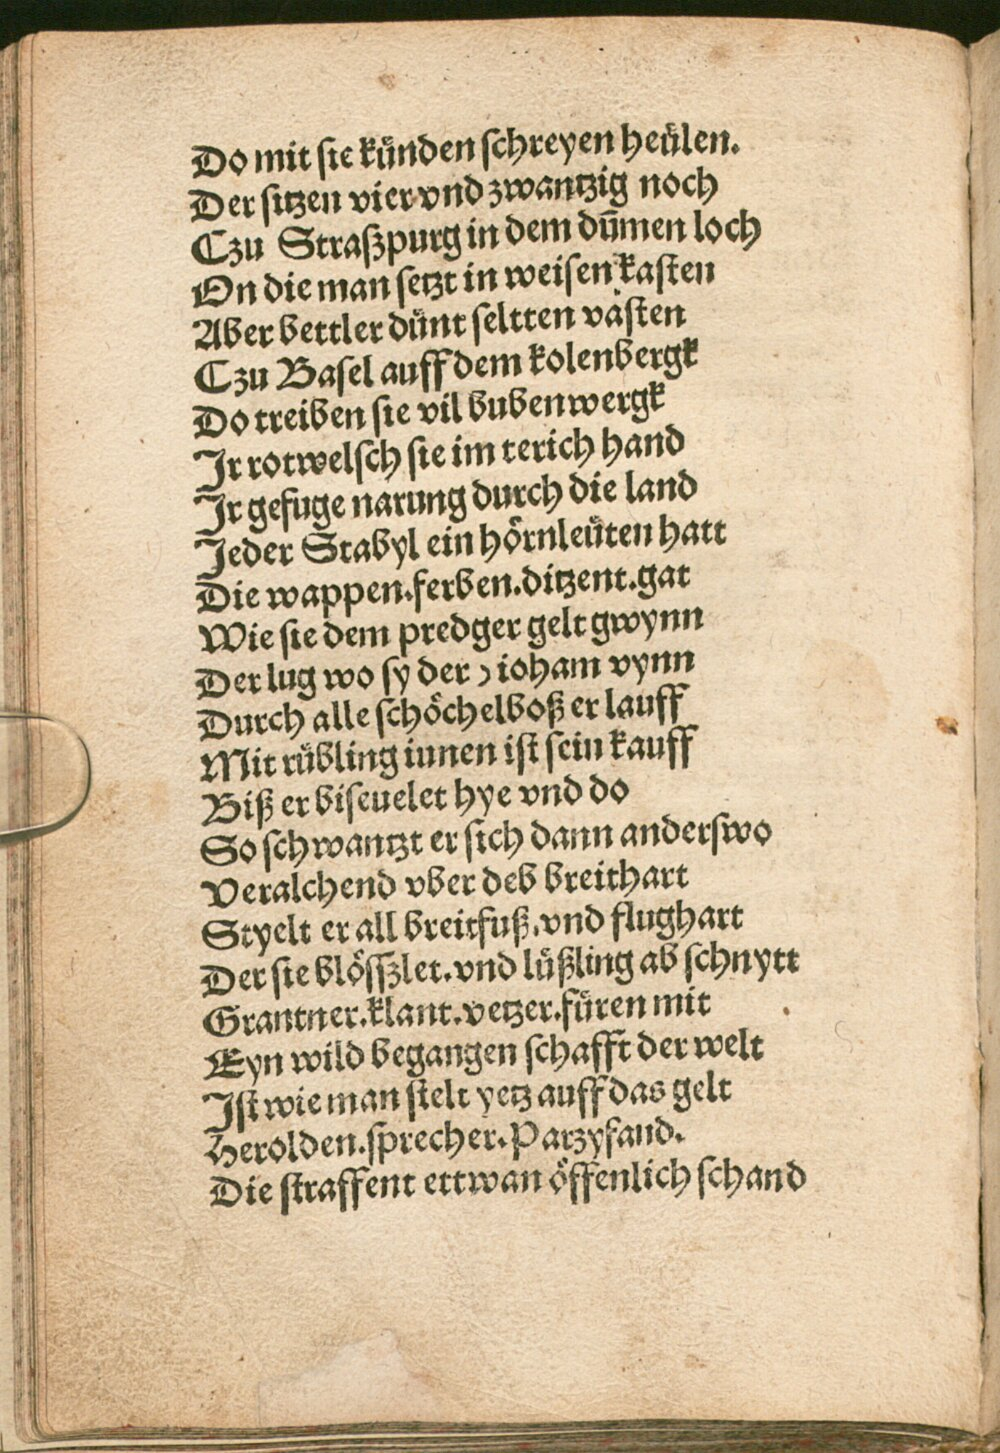 Do mit sie künden schreyen heülen.
Der sitzen vier vnd zwantzig noch
Czu Straßpurg in dem dūmen loch
On die man setzt in weisen kasten
Aber bettler dünt seltten vasten
Czu Basel auff dem kolenbergk
Do treiben sie vil bubenwergk
Jr rotwelsch sie im terich hand
Jr gefuge narung durch die land
Jeder Stabyl ein hörnleüten hatt
Die wappen.ferben.ditzent.gat
Wie sie dem predger gelt gwynn
Der lug wo sy der ioham vynn
Durch alle schöchelboß er lauff
Mit rübling iunen ist sein kauff
Biß er biseuelet hye vnd do
So schwantzt er sich dann anderswo
Veralchend vber deb breithart
Styelt er all breitfuß.vnd flughart
Der sie blösszlet.vnd lüßling ab schnytt
Grantner.klant.vetzer.füren mit
Eyn wild begangen schafft der welt
Ist wie man stelt yetz auff das gelt
Herolden.sprecher.Parzyfand.
Die straffent ettwan öffenlich schand